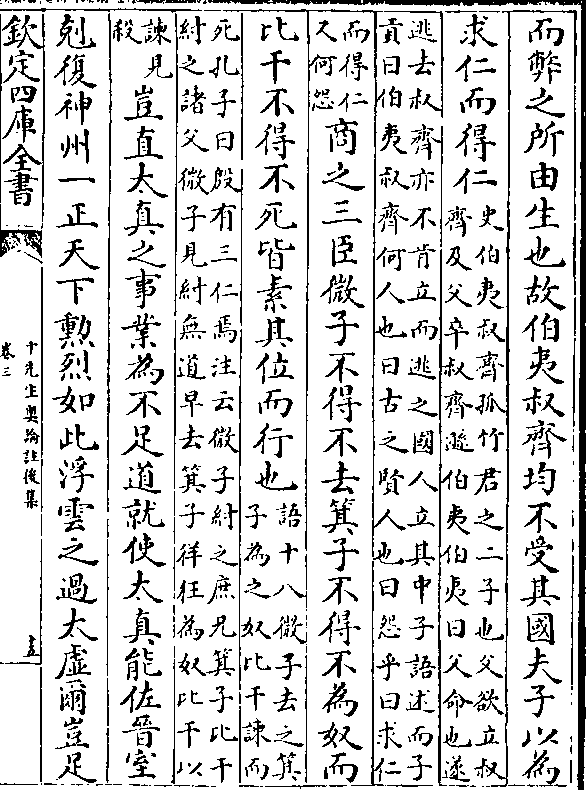 而弊之所由生也故伯夷叔齊均不受其國夫子以為
求仁而得仁史伯夷叔齊孤竹君之二子也父欲立叔
齊及父卒叔齊遜伯夷伯夷曰父命也遂
逃去叔齊亦不肯立而逃之國人立其中子語述而子
貢曰伯夷叔齊何人也曰古之賢人也曰怨乎曰求仁
而得仁
又何怨商之三臣微子不得不去箕子不得不為奴而
比干不得不死皆素其位而行也語十八微子去之箕
子為之奴比干諫而
死孔子曰殷有三仁焉注云微子紂之庶兄箕子比干
紂之諸父微子見紂無道早去箕子徉狂為奴比干以
諫見
殺豈直太真之事業為不足道就使太真能佐晉室
剋復神州一正天下勲烈如此浮雲之過太虛爾豈足
欽定四庫全書
十先生奥論註後集
卷三